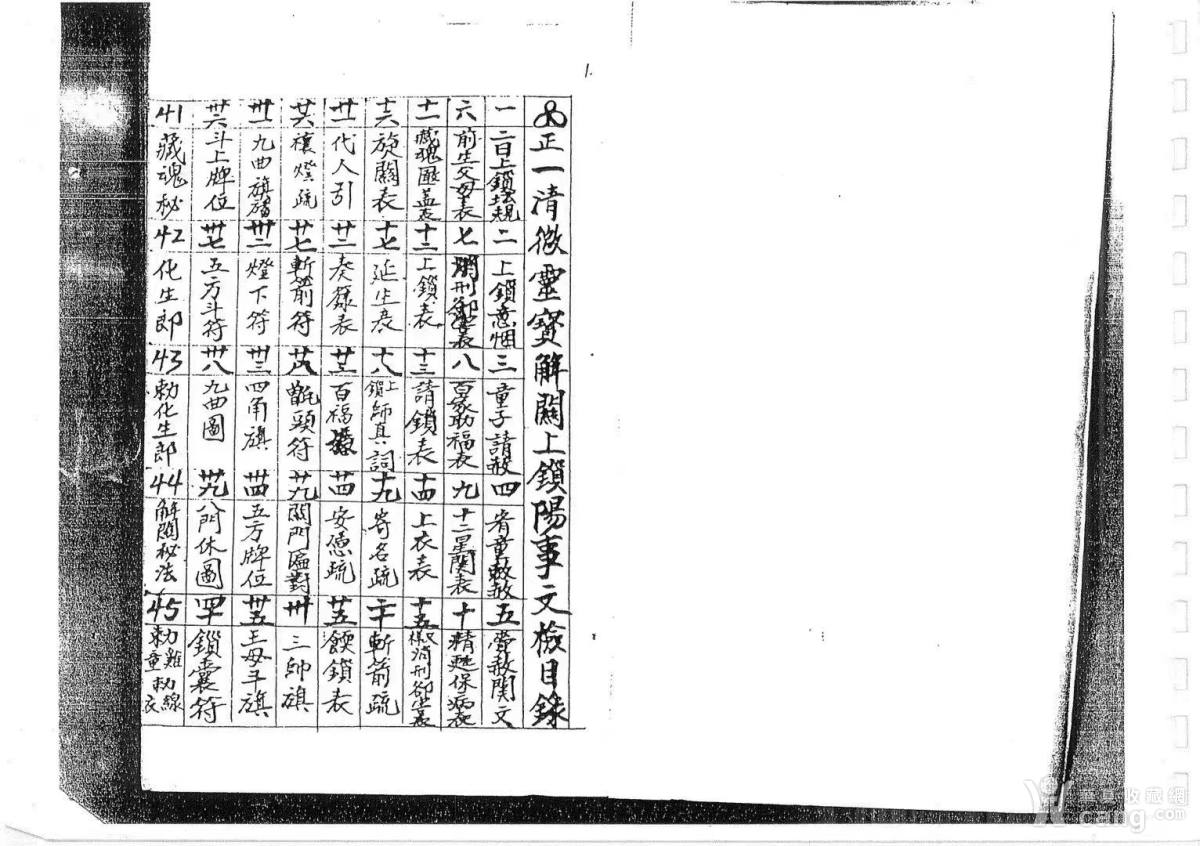 1.
正一清微靈寶解關上鎖陽事文檢目錄
一 二日上鎖壇規 二 上鎖意烟 三 童子請赦 四 宥童敕赦 五 賫赦関文
六 前生父母表 七 刑衝表 八 百家助福表 九 十二星関表 十 精甦保病表
十一 藏魂匭盖表 十二 上鎖表 十三 請鎖表 十四 上衣表 十五 消刑卻坐表
十六 旋關表 十七 延生表 十八 上鎖師真詞 十九 寄名疏 二十 斬箭疏
廿一 代人引 廿二 奏籙表 廿三 百福 廿四 安德疏 廿五 餪鎖表
廿六 禳燈疏 廿七 斬箭符 廿八 甑頭符 廿九 關門匾對 卅 三帥旗
卅一 九曲旗旛 卅二 燈下符 卅三 四角旗 卅四 五方牌位 卅五 王母斗旗
卅六 斗上牌位 卅七 五方斗符 卅八 九曲圖 卅九 八門休圖 四十 鎖囊符
41 藏魂秘 42 化生郎 43 勅化生郎 44 解関秘法 45 勅雞勅線勅童衣
華夏收藏網
cang.com